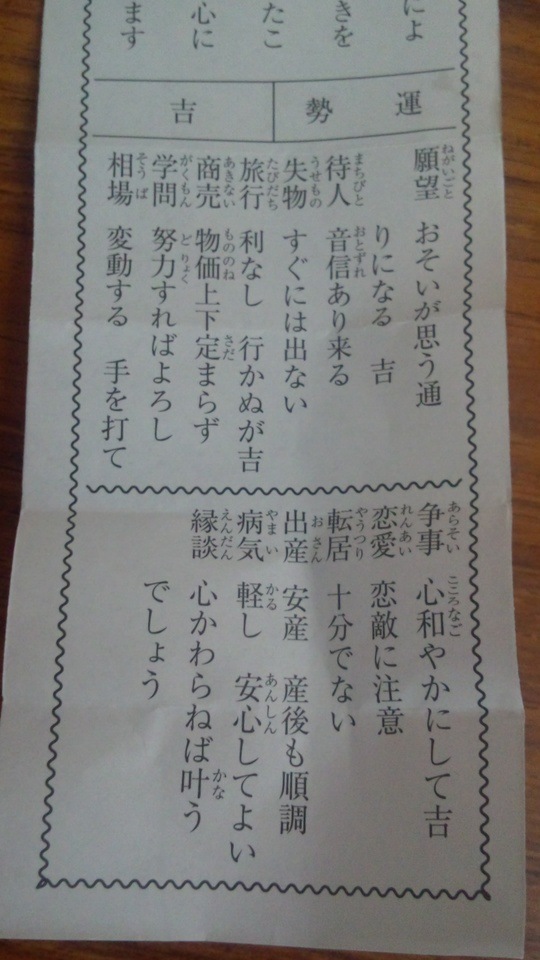 によ
きを
たこ
心に
ます
運勢
吉
ねがいごと
願望 おそいが思う通
りになる 吉
まちびと おとずれ
待人 音信あり来る
うせもの
失物 すぐには出ない
たびだち
旅行 利なし 行かぬが吉
あきない もののね さだ
商売 物価上下定まらず
がくもん どりょく
学問 努力すればよろし
そうば
相場 変動する 手を打て
あらそい こころなご
争事 心和やかにして吉
れんあい
恋愛 恋敵に注意
やうつり
転居 十分でない
おさん
出産 安産 産後も順調
やまい かる あんしん
病気 軽し 安心してよい
えんだん かな
縁談 心かわらねば叶う
でしょう